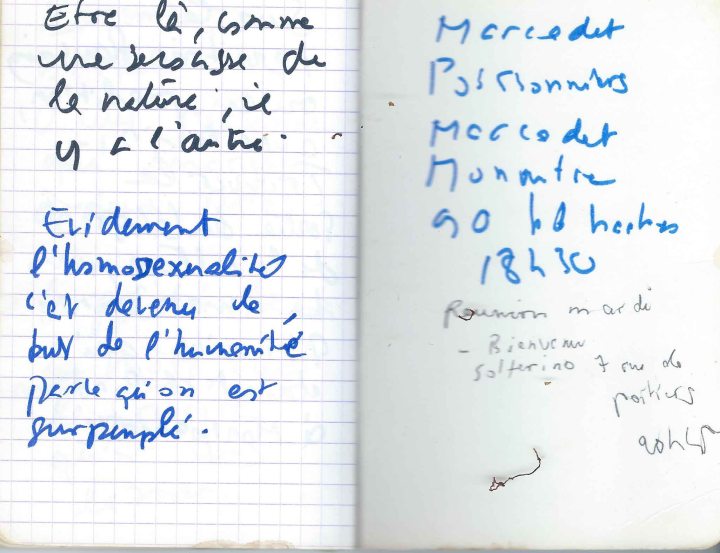 Etre là, comme
une            de
la nature, ie
y a l'autre.
Evidement
l'homosexualité
c'est devenu le
but de l'humanité
parce qu'on est
surpeuplé.
Marcadet
Poissonniers
Marcadet
90
18h30
Reunion mardi
- Bienvenu
solferino 7 rue de
poitiers
20h45